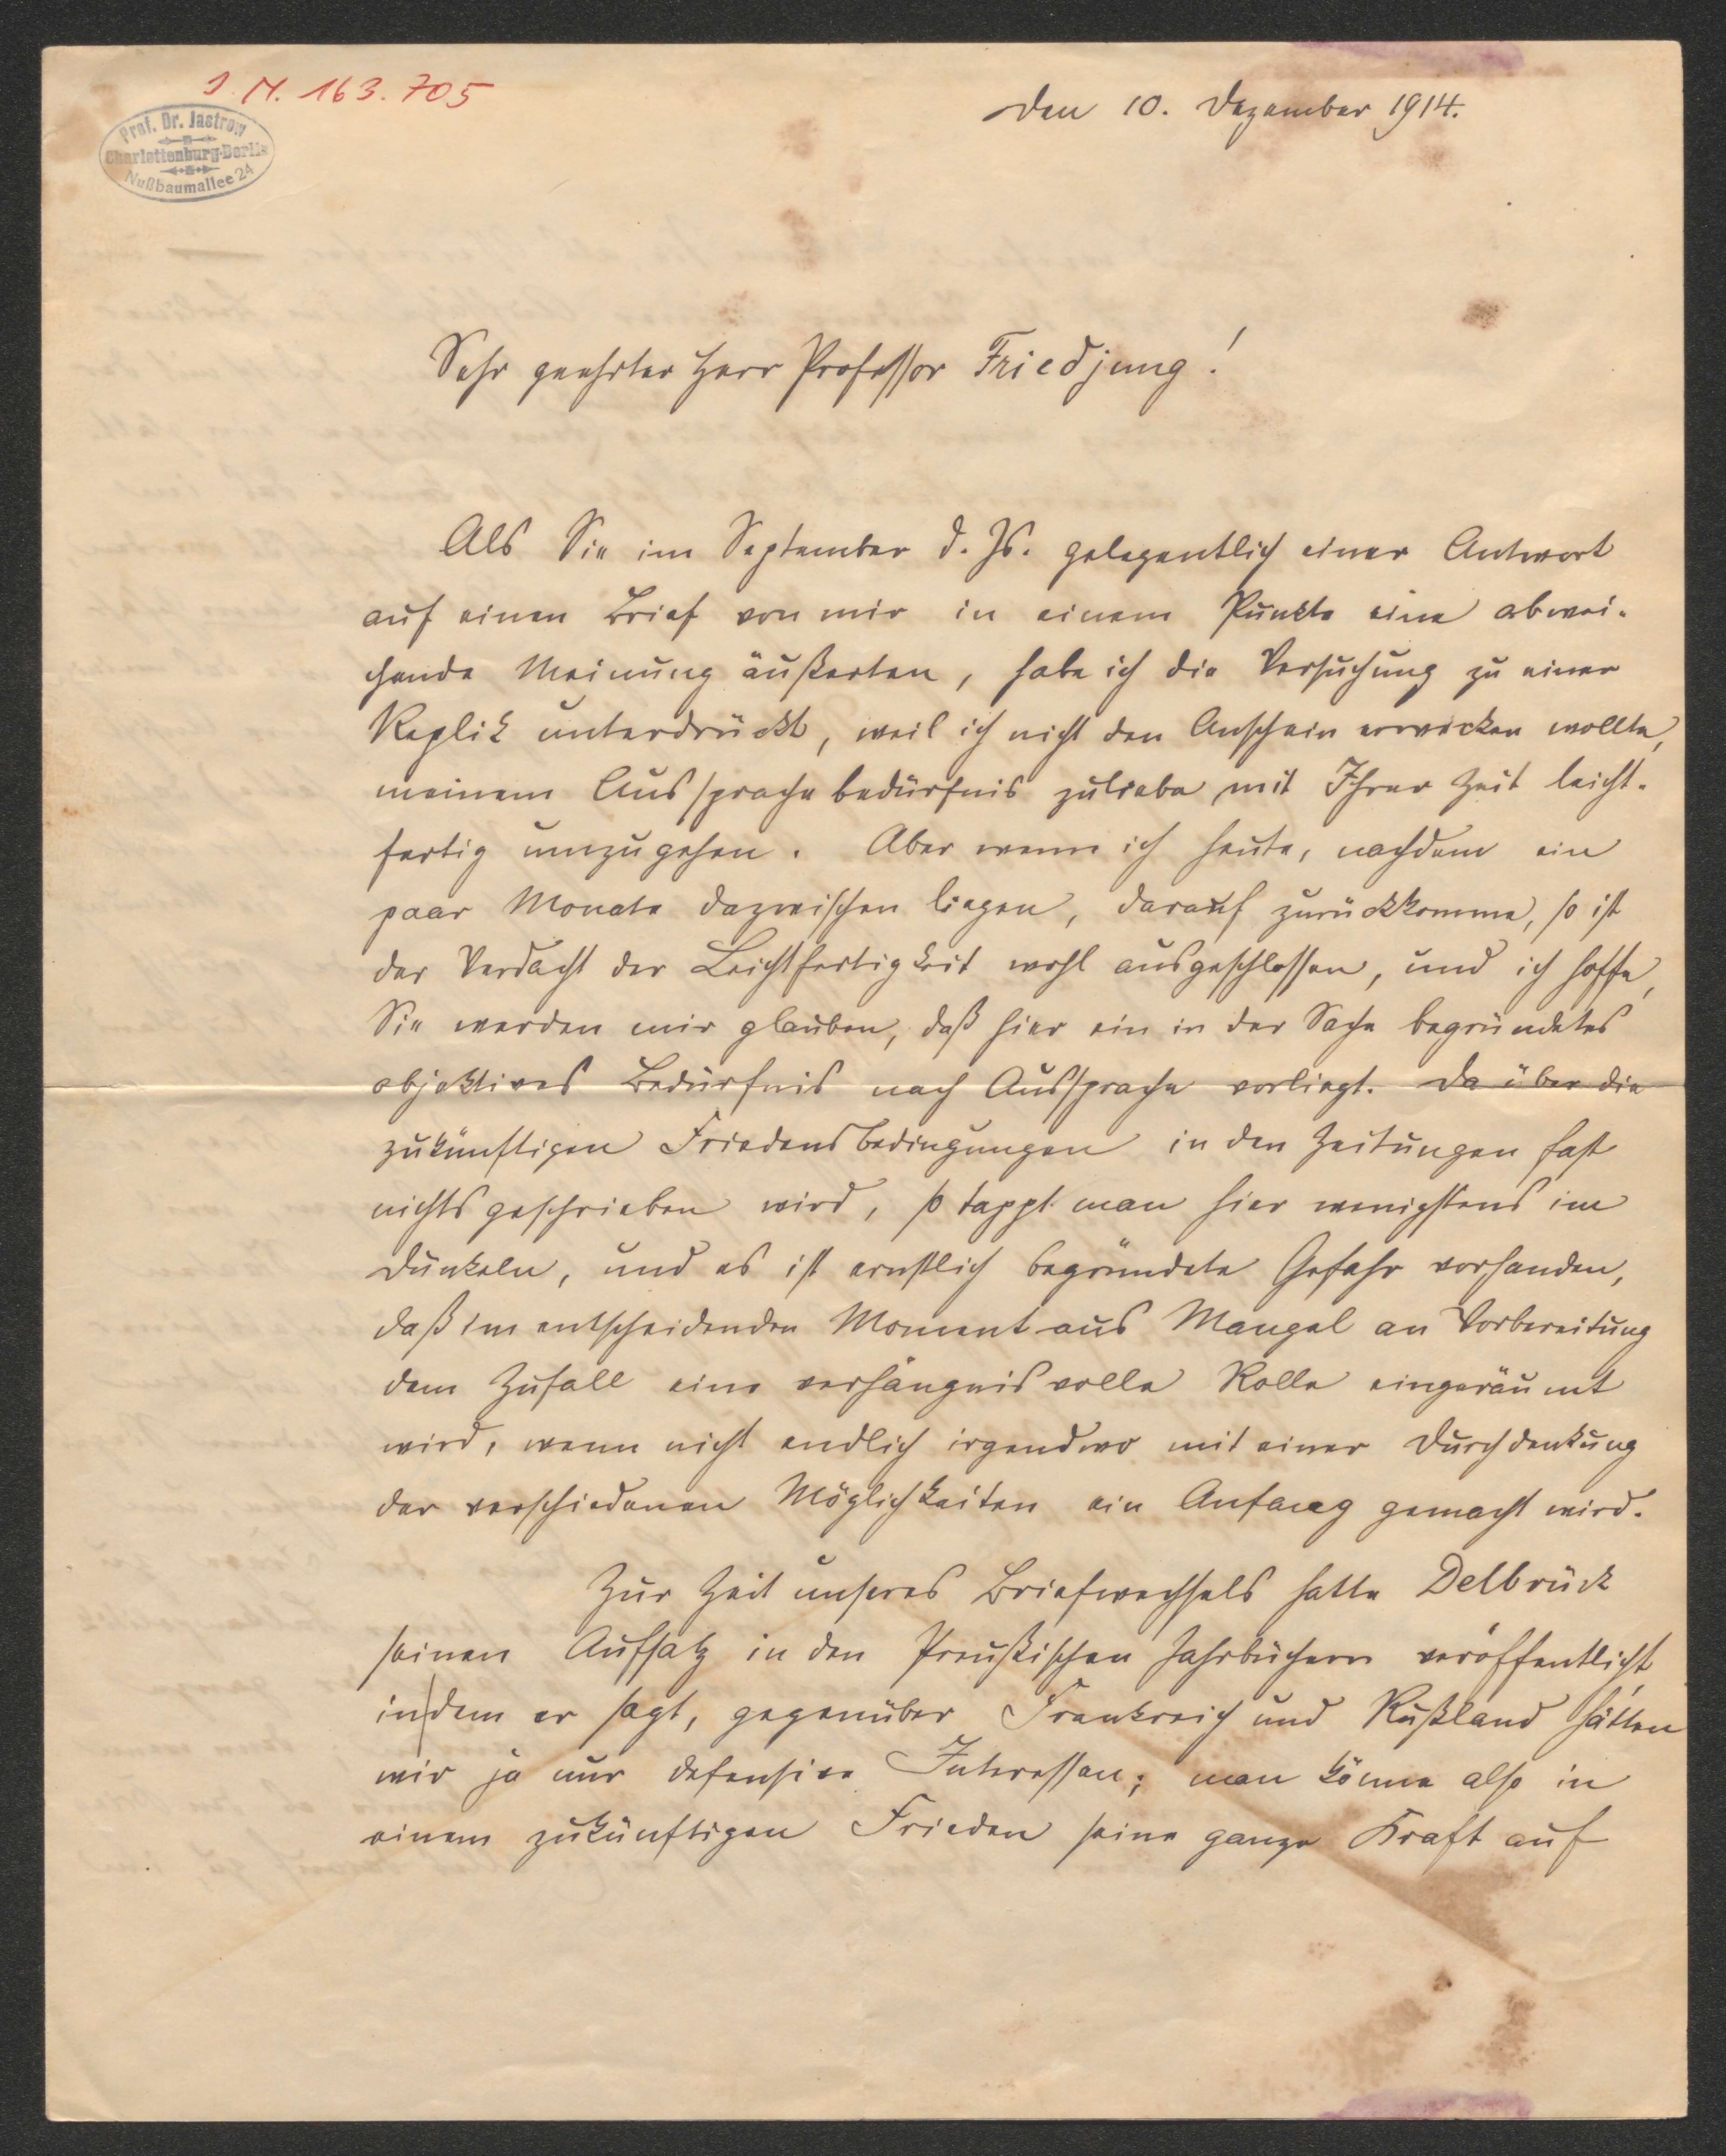 J. N. 163.705
Prof. Dr. Jastrow
Charlottenburg-Berlin
Nußbaumallee 24
Den 10. Dezember 1914.
Sehr geehrter Herr Professor Friedjung!
Als Sie im September d. Js. gelegentlich einer Antwort
auf einen Brief von mir in einem Punkte eine abwei-
chende Meinung äußerten, habe ich die Versuchung zu einer
Replik unterdrückt, weil ich nicht den Anschein erwecken wollte,
meinem Aussprachebedürfnis zuliebe mit Ihrer Zeit leicht-
fertig umzugehen. Aber wenn ich heute, nachdem ein
paar Monate dazwischen liegen, darauf zurückkomme, so ist
der Verdacht der Leichtfertigkeit wohl ausgeschlossen, und ich hoffe,
Sie werden mir glauben, daß hier ein in der Sache begründetes
objektives Bedürfnis nach Aussprache vorliegt. Da über die
zukünftigen Friedensbedingungen in den Zeitungen fast
nichts geschrieben wird, so tappt man hier wenigstens im
Dunkeln, und es ist ernstlich begründete Gefahr vorhanden,
daß im entscheidenden Moment aus Mangel an Vorbereitung
dem Zufall eine verhängnisvolle Rolle eingeräumt
wird, wenn nicht endlich irgendwo mit einer Durchdenkung
der verschiedenen Möglichkeiten ein Anfang gemacht wird.
Zur Zeit unseres Briefwechsels hatte Delbrück
seinen Aufsatz in den Preußischen Jahrbüchern veröffentlicht,
in dem er sagt, gegenüber Frankreich und Rußland hätten
wir ja nur defensive Interessen; man könne also in
einem zukünftigen Frieden seine ganze Kraft auf